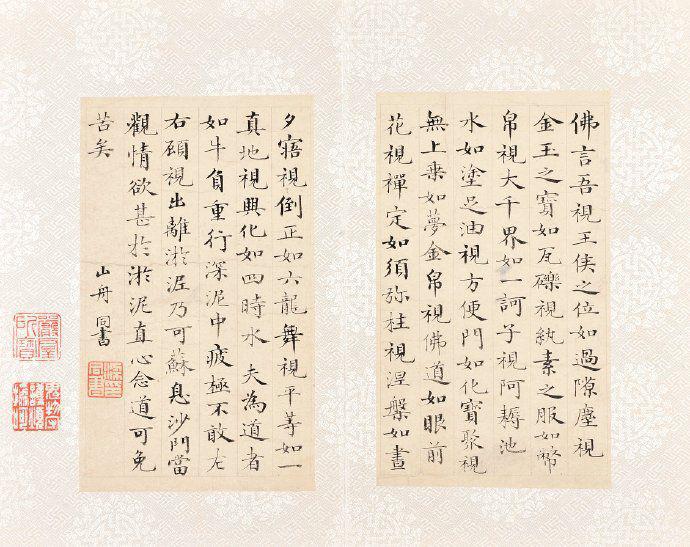 佛言吾視王侯之位如過隙塵視
金玉之寶如瓦礫視紈素之服如幣
帛視大千界如一訶子視阿耨池
水如塗足油視方便門如化寶聚視
無上乘如夢金帛視佛道如眼前
花視禪定如須弥柱視涅槃如晝
夕寤視倒正如六龍舞視平等如一
真地視興化如四時水夫為道者
如牛負重行深泥中疲極不敢左
右顧視出離淤泥乃可蘇息沙門當
觀情欲甚於淤泥直心念道可免
苦矣
山舟同書